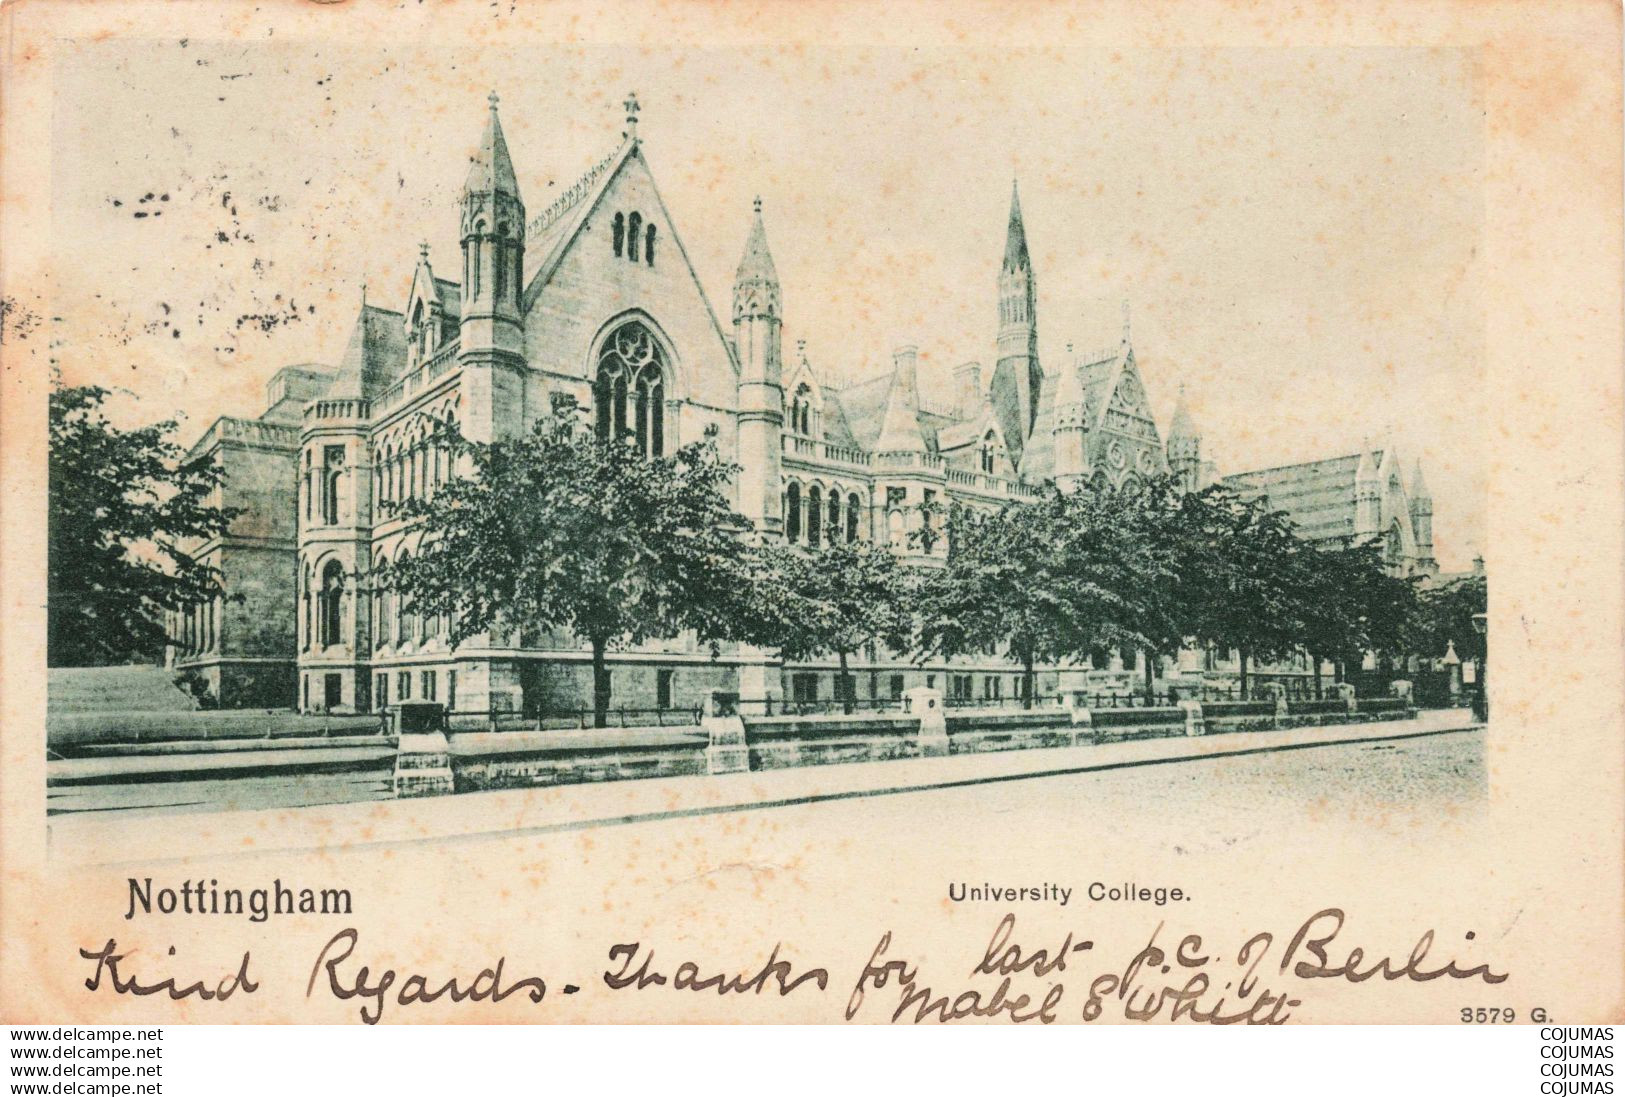 Nottingham
University College.
Kind Regards. Thanks for last p.c. of Berlin
Mabel E Whitt
3579 G.
www.delcampe.net
www.delcampe.net
www.delcampe.net
www.delcampe.net
COJUMAS
COJUMAS
COJUMAS
COJUMAS